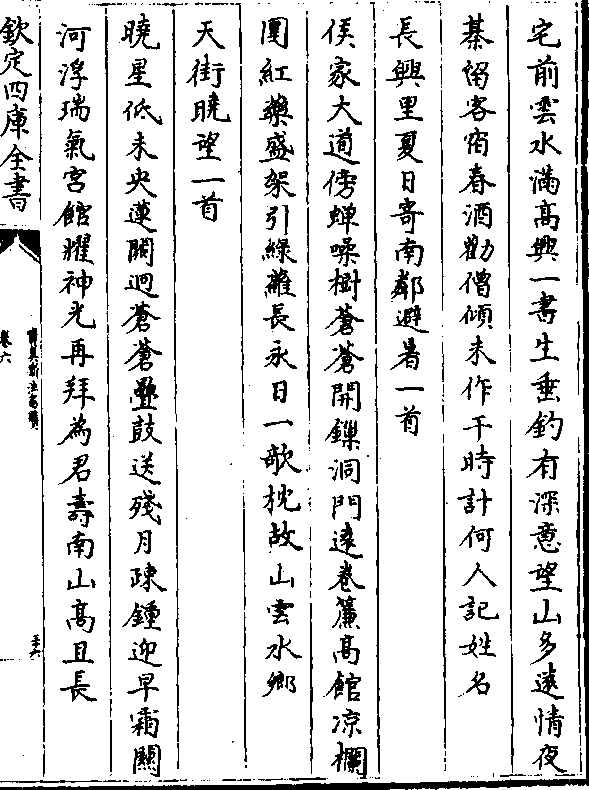 宅前雲水滿高興一書生垂釣有深意望山多遠情夜
棊留客宿春酒勸僧傾未作干時計何人記姓名
長興里夏日寄南鄰避暑一首
侯家大道傍蟬噪樹蒼蒼開鏁洞門遠卷簾高館凉欄
圍紅藥盛架引綠蘿長永日一欹枕故山雲水鄉
天街曉望一首
曉星低未央蓮闕迥蒼蒼疊鼓送殘月疎鍾迎早霜關
河浮瑞氣宮館耀神光再拜為君壽南山高且長
欽定四庫全書
寶真齋法書贊
卷六